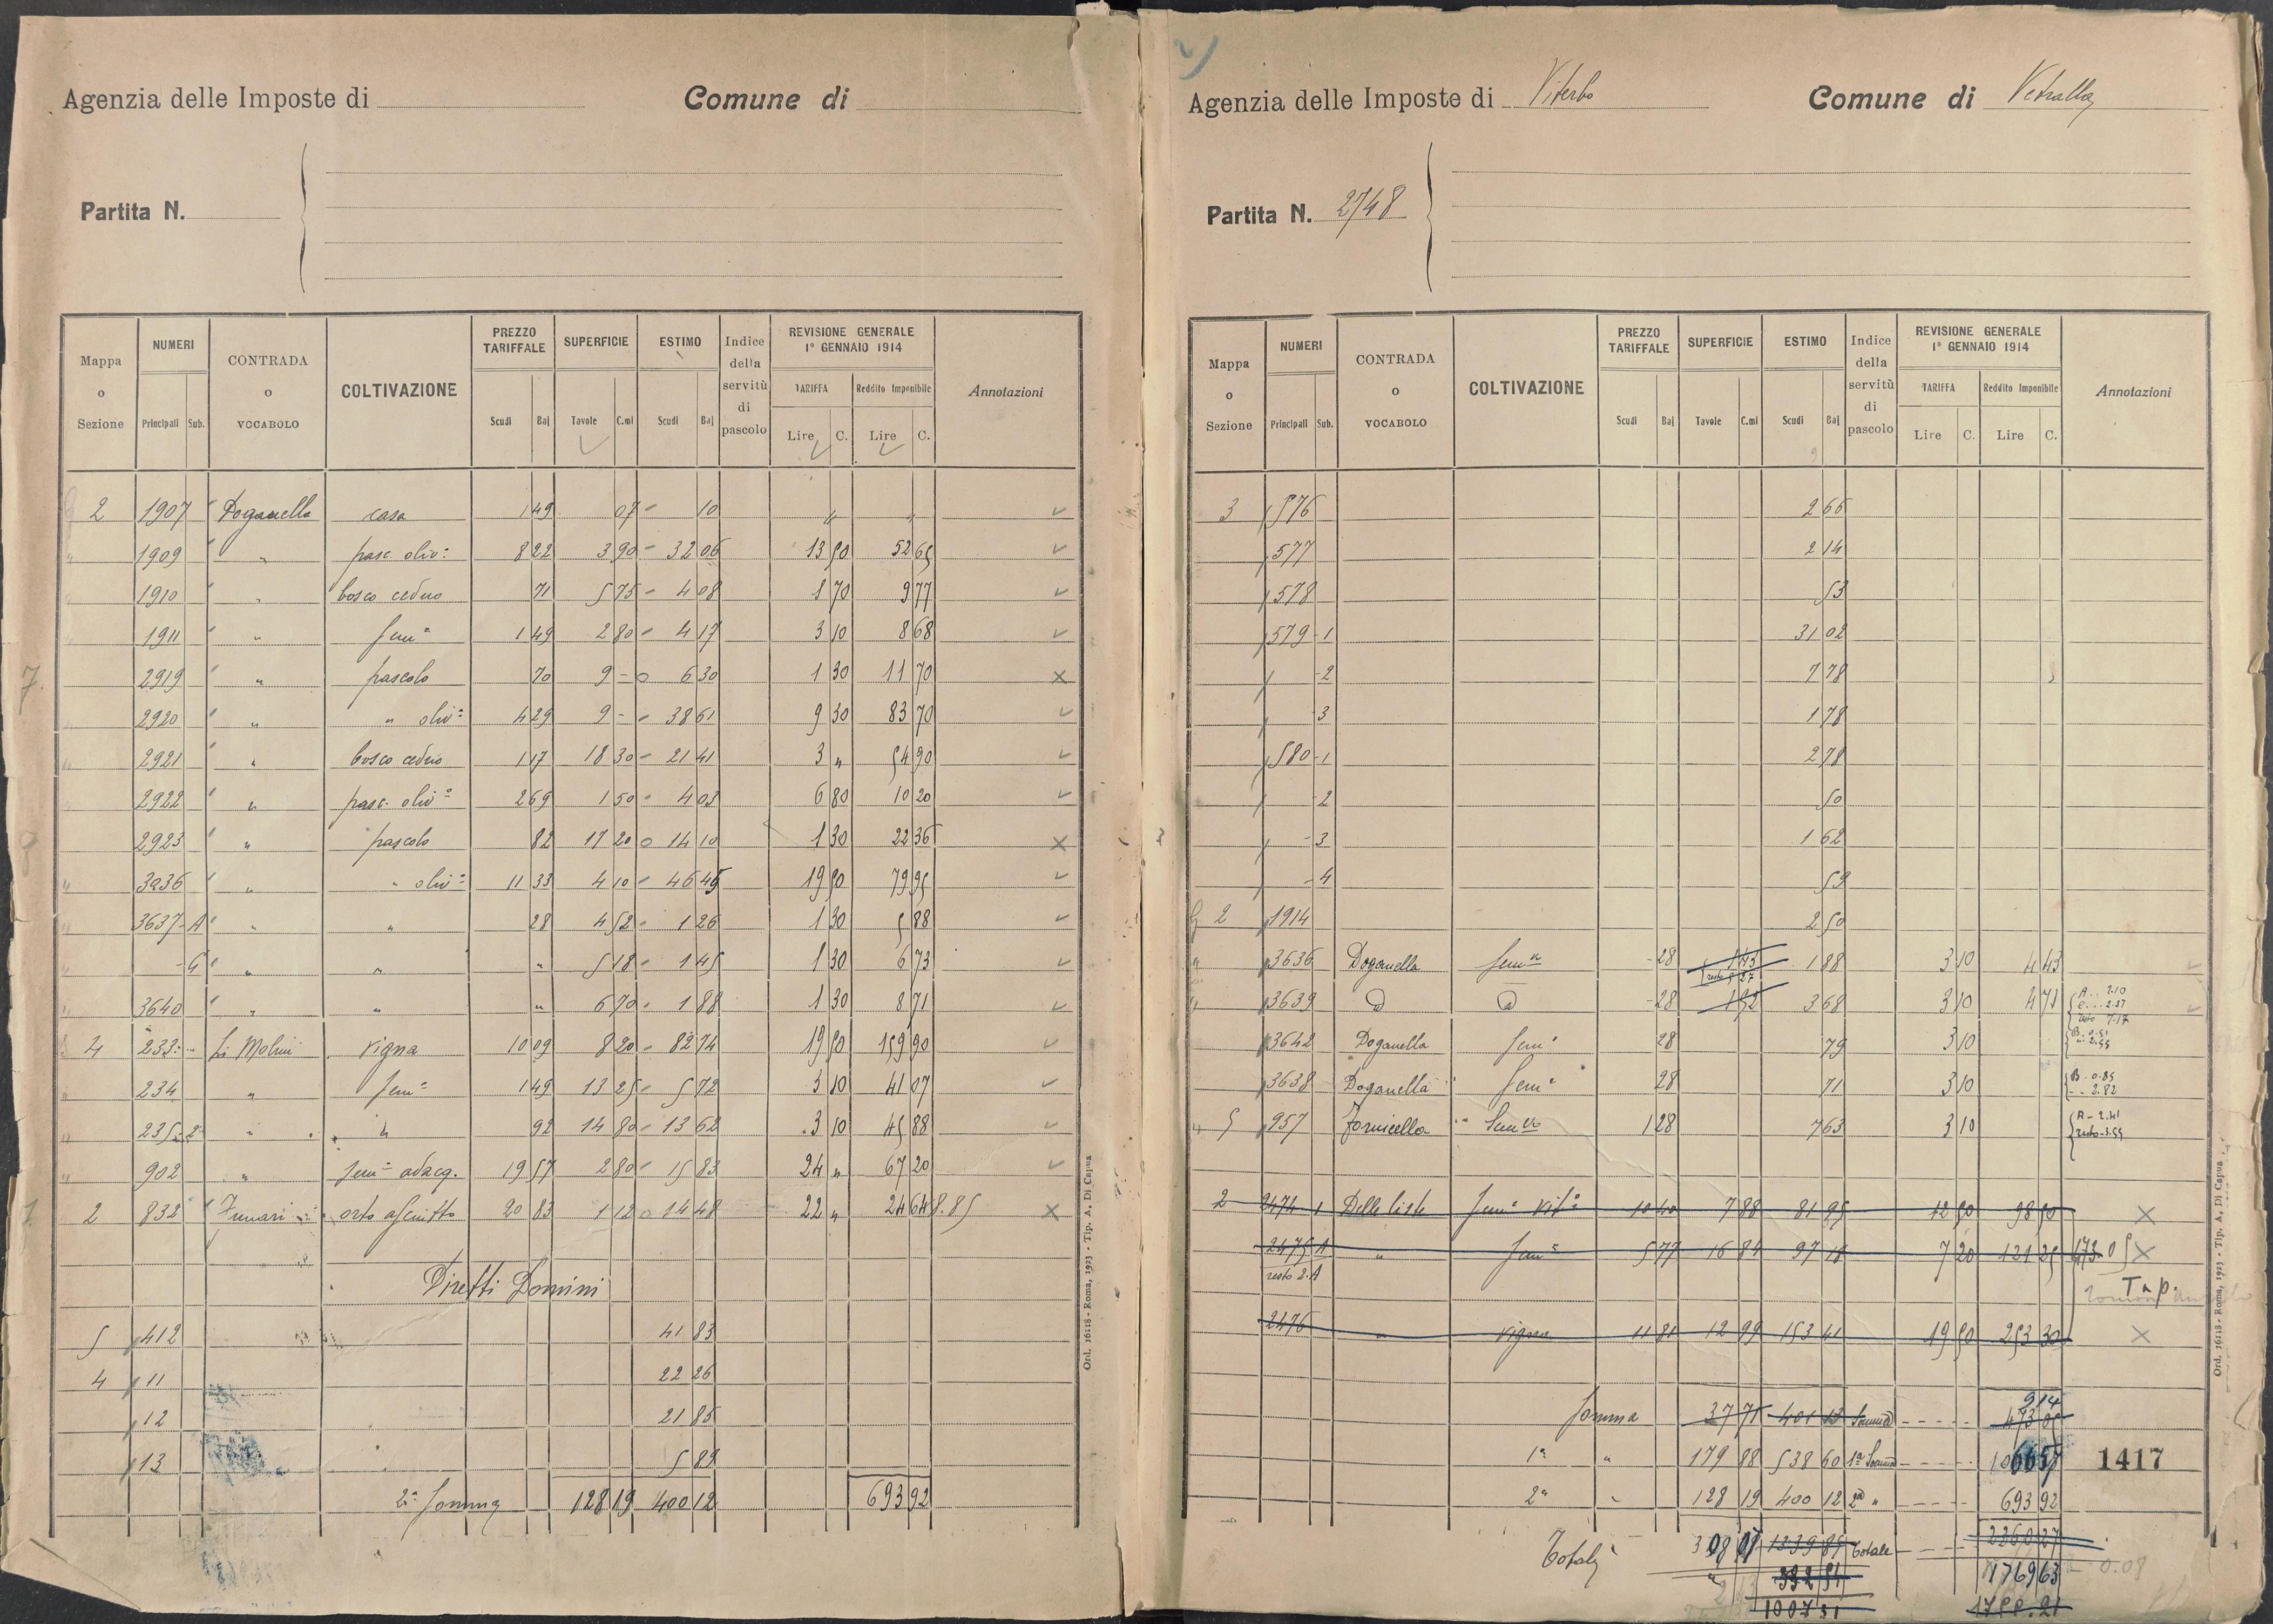 Agenzia delle Imposte di
Comune di
Partita N.
Mappa o Sezione | NUMERI Principali Sub. | CONTRADA o VOCABOLO | COLTIVAZIONE | PREZZO TARIFFALE Scudi Baj | SUPERFICIE Tavole C.mi | ESTIMO Scudi Baj | Indice della servitù di pascolo | REVISIONE GENERALE 1° GENNAIO 1914 TARIFFA Lire C. Reddito Imponibile Lire C. | Annotazioni
2 1907 Doganella casa 1 49 07 - 10 " "
" 1909 " pasc. oliv: 8 22 3 90 - 32 06 13 50 52 65
1910 " bosco ceduo 71 5 75 - 4 08 1 70 9 77
1911 " Sem° 1 49 2 80 - 4 17 3 10 8 68
2919 " pascolo 70 9 - 0 6 30 1 30 11 70 ×
2920 " " oliv° 4 29 9 - - 38 61 9 30 83 70
" 2921 " bosco ceduo 1 17 18 30 - 21 41 3 " 54 90
" 2922 " pasc. oliv° 2 69 1 50 - 4 03 6 80 10 20
2923 " pascolo 82 17 20 0 14 10 1 30 22 36 ×
" 3036 " " oliv° 11 33 4 10 - 46 45 19 50 79 95
" 3637 A " " 28 4 52 - 1 26 1 30 5 88
" " " " 5 18 - 1 45 1 30 6 73
" 3640 " " " 6 70 - 1 88 1 30 8 71
4 233 Li Molini Vigna 10 09 8 20 - 82 74 19 50 159 90
" 234 " Sem° 1 49 13 25 - 5 72 3 10 41 07
" 235 2 " " 92 14 80 - 13 62 3 10 45 88
" 902 " Sem° adacq. 19 57 2 80 - 15 83 24 " 67 20
2 832 Funari orto asciutto 20 83 1 12 0 14 48 22 " 24 64 8.85 ×
Diretti Domini
5 412 41 83
4 11 22 26
12 21 85
13 5 89
2ª Somma 128 19 400 12 693 92
Ord. 16118 - Roma, 1923 - Tip. A. Di Capua
Agenzia delle Imposte di Viterbo
Comune di Vetralla
Partita N. 2748
Mappa o Sezione | NUMERI Principali Sub. | CONTRADA o VOCABOLO | COLTIVAZIONE | PREZZO TARIFFALE Scudi Baj | SUPERFICIE Tavole C.mi | ESTIMO Scudi Baj | Indice della servitù di pascolo | REVISIONE GENERALE 1° GENNAIO 1914 TARIFFA Lire C. Reddito Imponibile Lire C. | Annotazioni
3 576 2 66
577 2 14
578 53
579 - 1 31 02
- 2 7 78
3 1 78
580 - 1 2 78
- 2 50
- 3 1 62
- 4 59
2 1914 2 50
" 3636 Doganella Sem° 28 1 43 1 88 3 10 4 43
3639 D D 28 1 52 3 68 3 10 4 71 A.. 2.10
resto 7.17
3642 Doganella Sem° 28 79 3 10 B. 0.51
3638 Doganella Sem° 28 71 3 10 B. 0.85
2.82
5 957 Fornicella Sem° 1 28 7 63 3 10 A - 2.41
resto - 3.55
2 2474 1 Delle liste Sem° vit° 10 40 7 88 81 95 12 50 98 50 ×
2475 A " Sem° 5 77 16 84 97 18 7 20 121 25 473.05 ×
resto 2.A
T. p.
2476 " Vigna 11 81 12 99 153 41 19 50 253 30 ×
914
Somma 37 71 401 13 Somma 473 05
1ª " 179 88 538 60 1ª Somma 1417
2ª " 128 19 400 12 2ª " 693 92
Totali 308 07 1339 85 Totale 2260 27
1769 63 0.08
1007 31
Ord. 16118 - Roma, 1923 - Tip. A. Di Capua